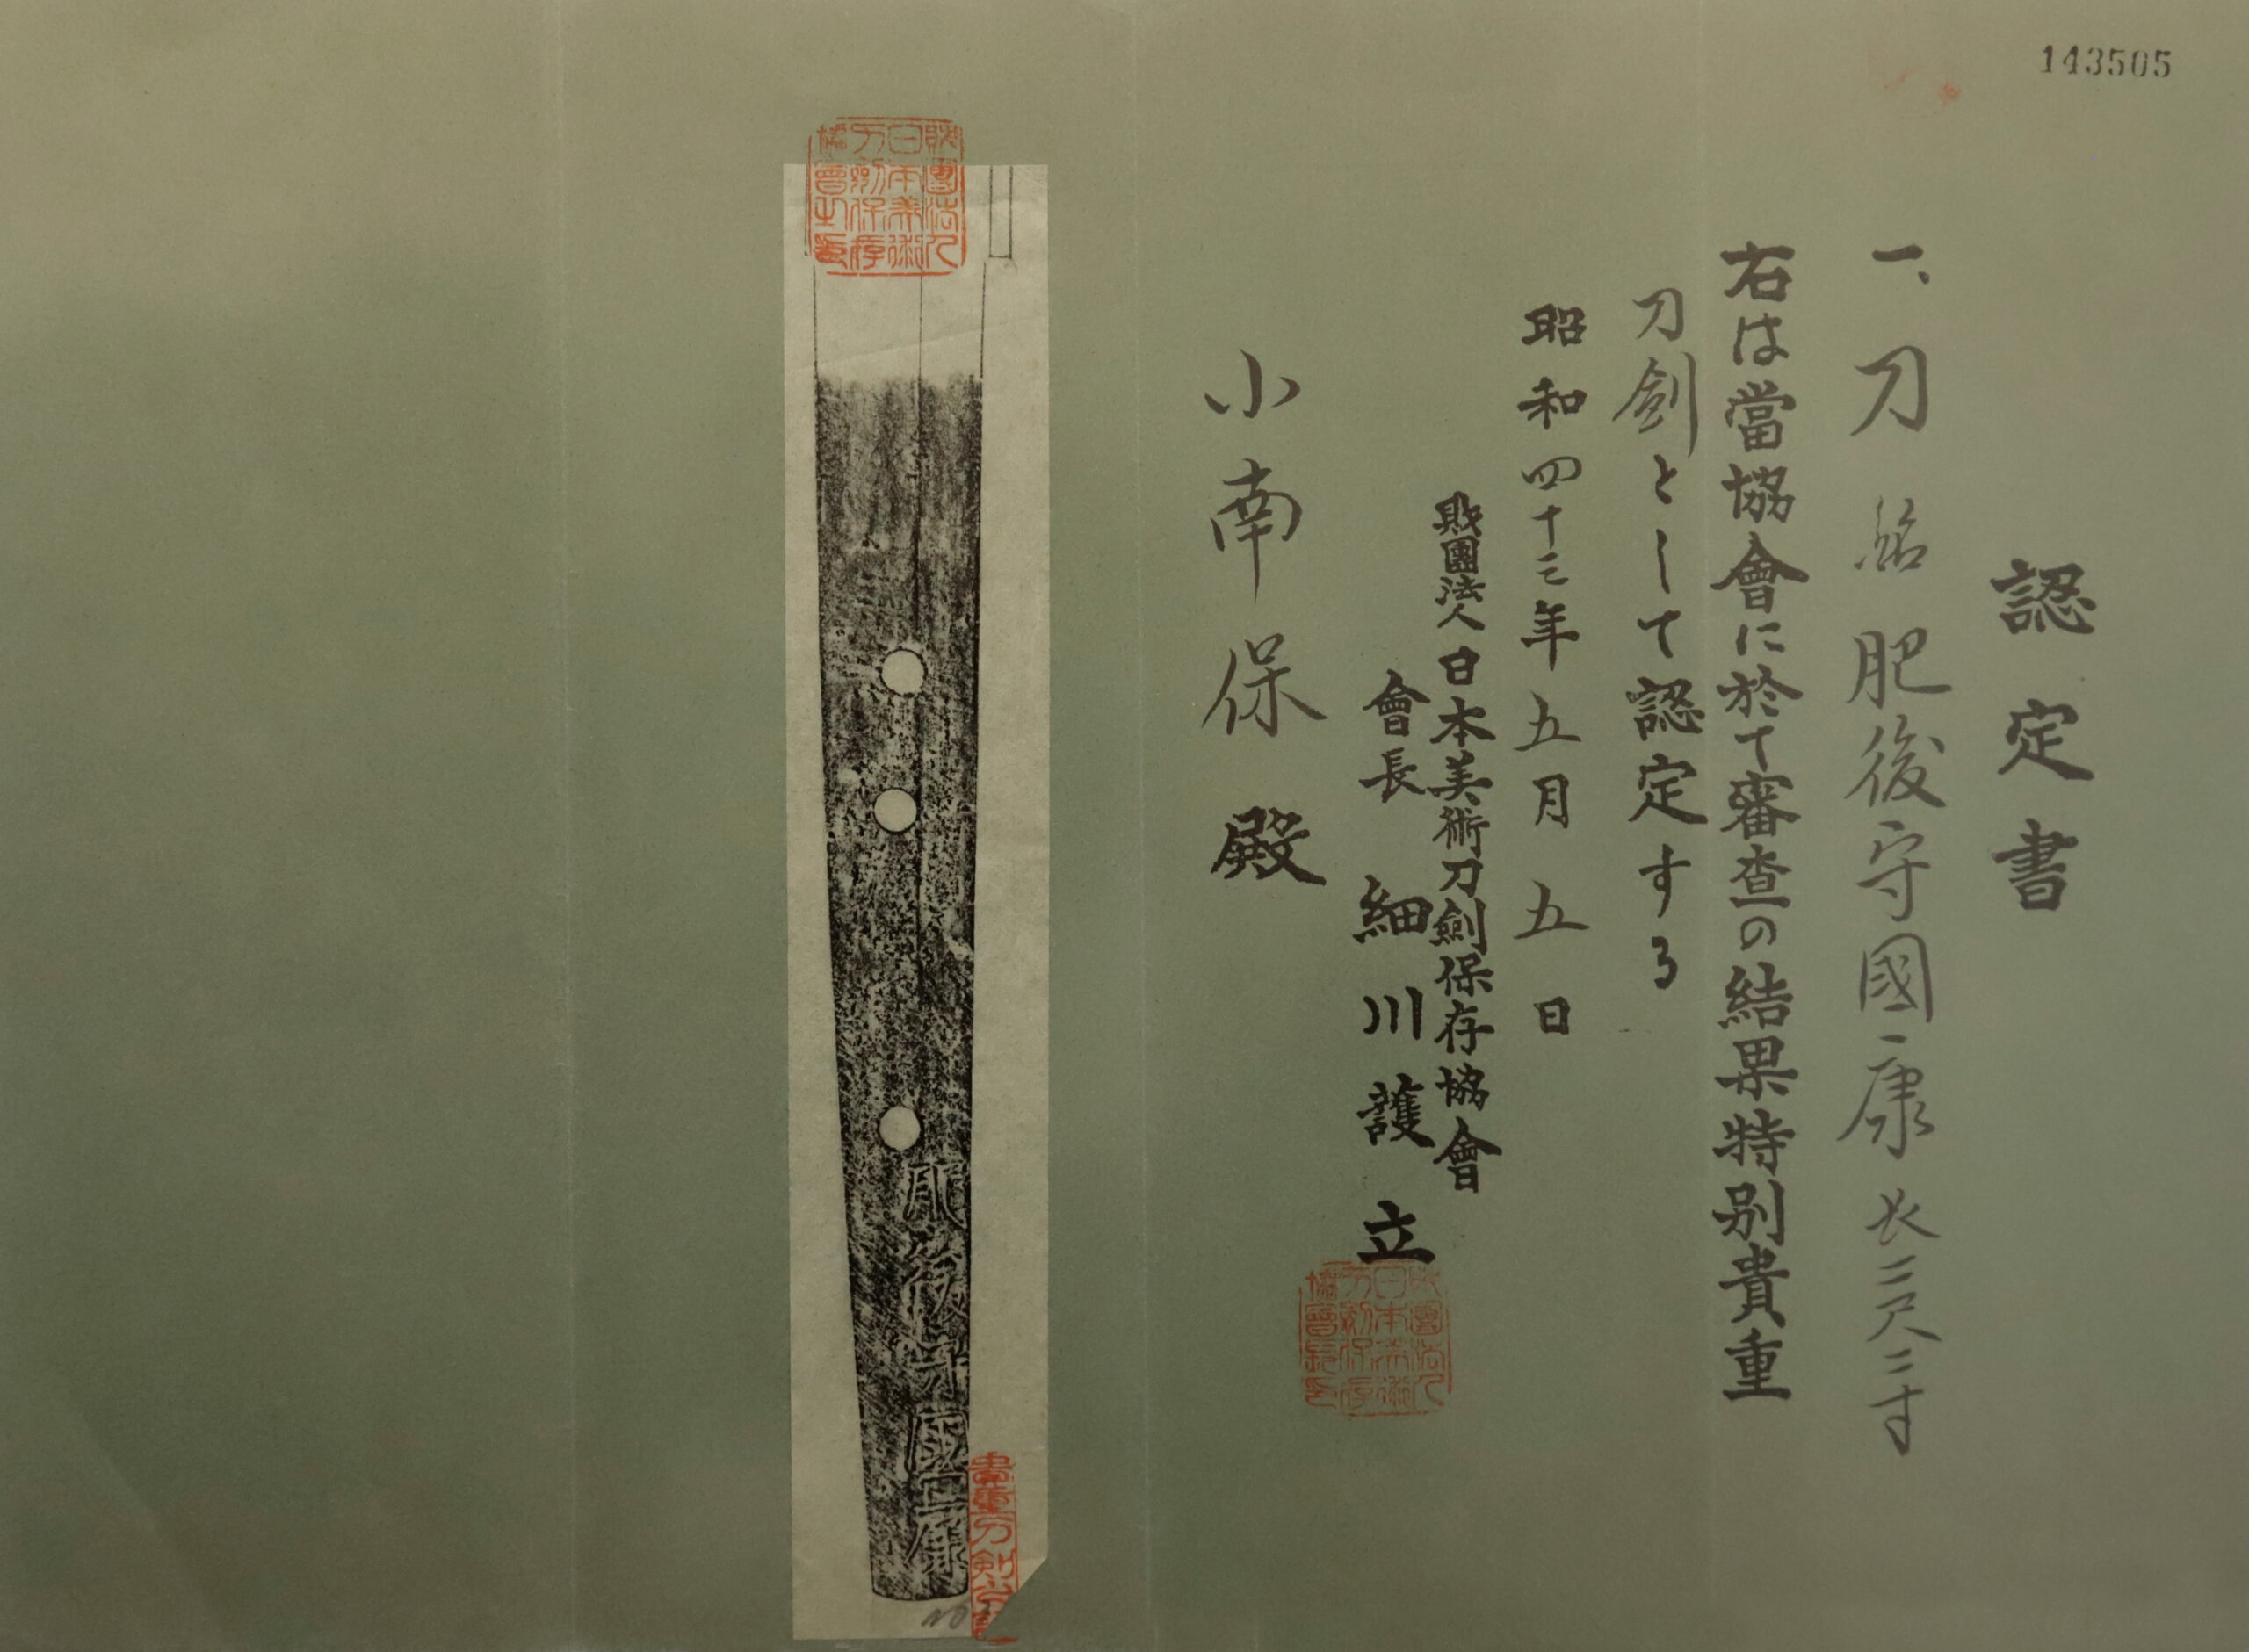 143505
認定書
一、刀 銘 肥後守國康 長二尺二寸
右は當協會に於て審査の結果特別貴重
刀劍として認定する
昭和四十三年五月五日
財團法人日本美術刀劍保存協會
會長 細川護立
小南保殿
財團法人日本美術刀劍保存協會之印
肥後守國康